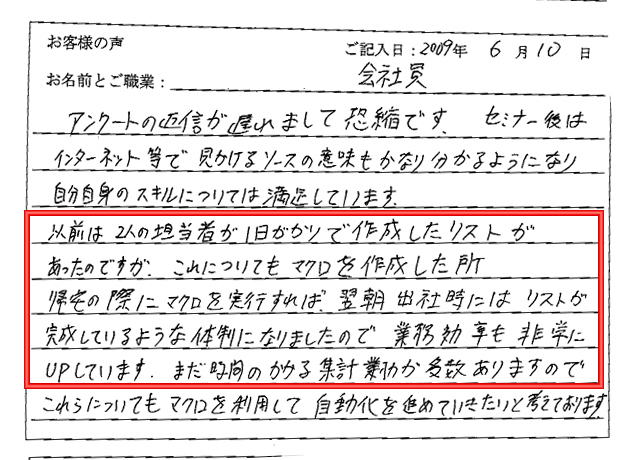 お客様の声
ご記入日：2009年 6月10日
お名前とご職業： 会社員
アンケートの返信が遅れまして恐縮です。 セミナー後は
インターネット等で見かけるソースの意味もかなり分かるようになり
自分自身のスキルについては満足しています。
以前は2人の担当者が1日がかりで作成したリストが
あったのですが、これについてもマクロを作成した所
帰宅の際にマクロを実行すれば、翌朝出社時にはリストが
完成しているような体制になりましたので 業務効率も非常に
UPしています。まだ時間のかかる集計業務が多数ありますので
これらについてもマクロを利用して 自動化を進めていきたいと考えております